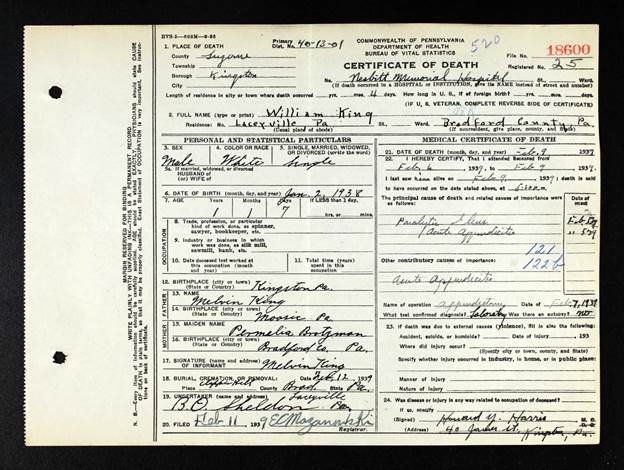 HVS-5—605M—8-36
Primary Dist. No. 40-13-01
COMMONWEALTH OF PENNSYLVANIA
DEPARTMENT OF HEALTH
BUREAU OF VITAL STATISTICS
520
File No. 18600
1 PLACE OF DEATH
CERTIFICATE OF DEATH
Registered No. 25
County Luzerne
Township
Borough Kingston
No. Nesbitt Memorial Hospital St. Ward.
City
(If death occurred in a HOSPITAL or INSTITUTION, give its NAME instead of street and number)
Length of residence in city or town where death occurred yrs. mos. 4 days. How long in U.S., if of foreign birth? yrs. mos. days.
(IF U.S. VETERAN, COMPLETE REVERSE SIDE OF CERTIFICATE)
2. FULL NAME (type or print) William King
Residence. No. Laceyville Pa St., Ward. Bradford County, Pa.
(Usual place of abode) (If nonresident, give place, county, and State)
PERSONAL AND STATISTICAL PARTICULARS
3. SEX 4. COLOR OR RACE 5. SINGLE, MARRIED, WIDOWED, OR DIVORCED (write the word)
Male White Single
5a. If married, widowed, or divorced
HUSBAND of
(or) WIFE of
6. DATE OF BIRTH (month, day, and year) Jan. 2, 1938
7. AGE Years Months Days If LESS than 1 day,
1 1 7 hrs. or min.
8. Trade, profession, or particular kind of work done, as spinner, sawyer, bookkeeper, etc.
9. Industry or business in which work was done, as silk mill, sawmill, bank, etc.
10. Date deceased last worked at this occupation (month and year)
11. Total time (years) spent in this occupation
12. BIRTHPLACE (city or town) Kingston Pa.
(State or Country)
13. NAME Melvin King
14. BIRTHPLACE (city or town) Moosic Pa.
(State or County)
15. MAIDEN NAME Permelia Brotzman
16. BIRTHPLACE (city or town) Bradford Co. Pa.
(State or County)
17. SIGNATURE (name and address) of informant Melvin King
18. BURIAL, CREMATION, OR REMOVAL Date Feb 12 1939
County Brad. State Pa.
19. UNDERTAKER Laceyville
B.O. Sheldon Pa
20. FILED Feb 11 1939 Registrar.
MEDICAL CERTIFICATE OF DEATH
21. DATE OF DEATH (month, day, and year) Feb 9 1939
22. I HEREBY CERTIFY, That I attended deceased from
Feb 6 1939, to Feb 9 1939
I last saw h alive on Feb 9, 1939; death is said
to have occurred on the date stated above, at
The principal cause of death and related causes of importance were as follows:
Paralytic Ileus
Acute Appendicitis
121
Other contributory causes of importance: 122b
Acute Appendicitis
Name of operation appendectomy Date of Feb 7, 1939
What test confirmed diagnosis? Was there an autopsy?
23. If death was due to external causes (violence), fill in also the following:
Accident, suicide, or homicide? Date of injury 193
Where did injury occur?
(Specify city or town, county, and State)
Specify whether injury occurred in industry, in home, or in public place.
Manner of injury
Nature of injury
24. Was disease or injury in any way related to occupation of deceased?
If so, specify
(Signed) Howard Y. Harris M.D.
(Address) 40 James St., Kingston, Pa.
MARGIN RESERVED FOR BINDING
WRITE PLAINLY WITH UNFADING INK—THIS IS A PERMANENT RECORD